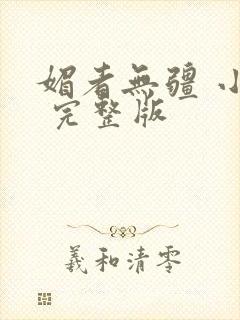 媚者無疆 小
完整版
羲和清零